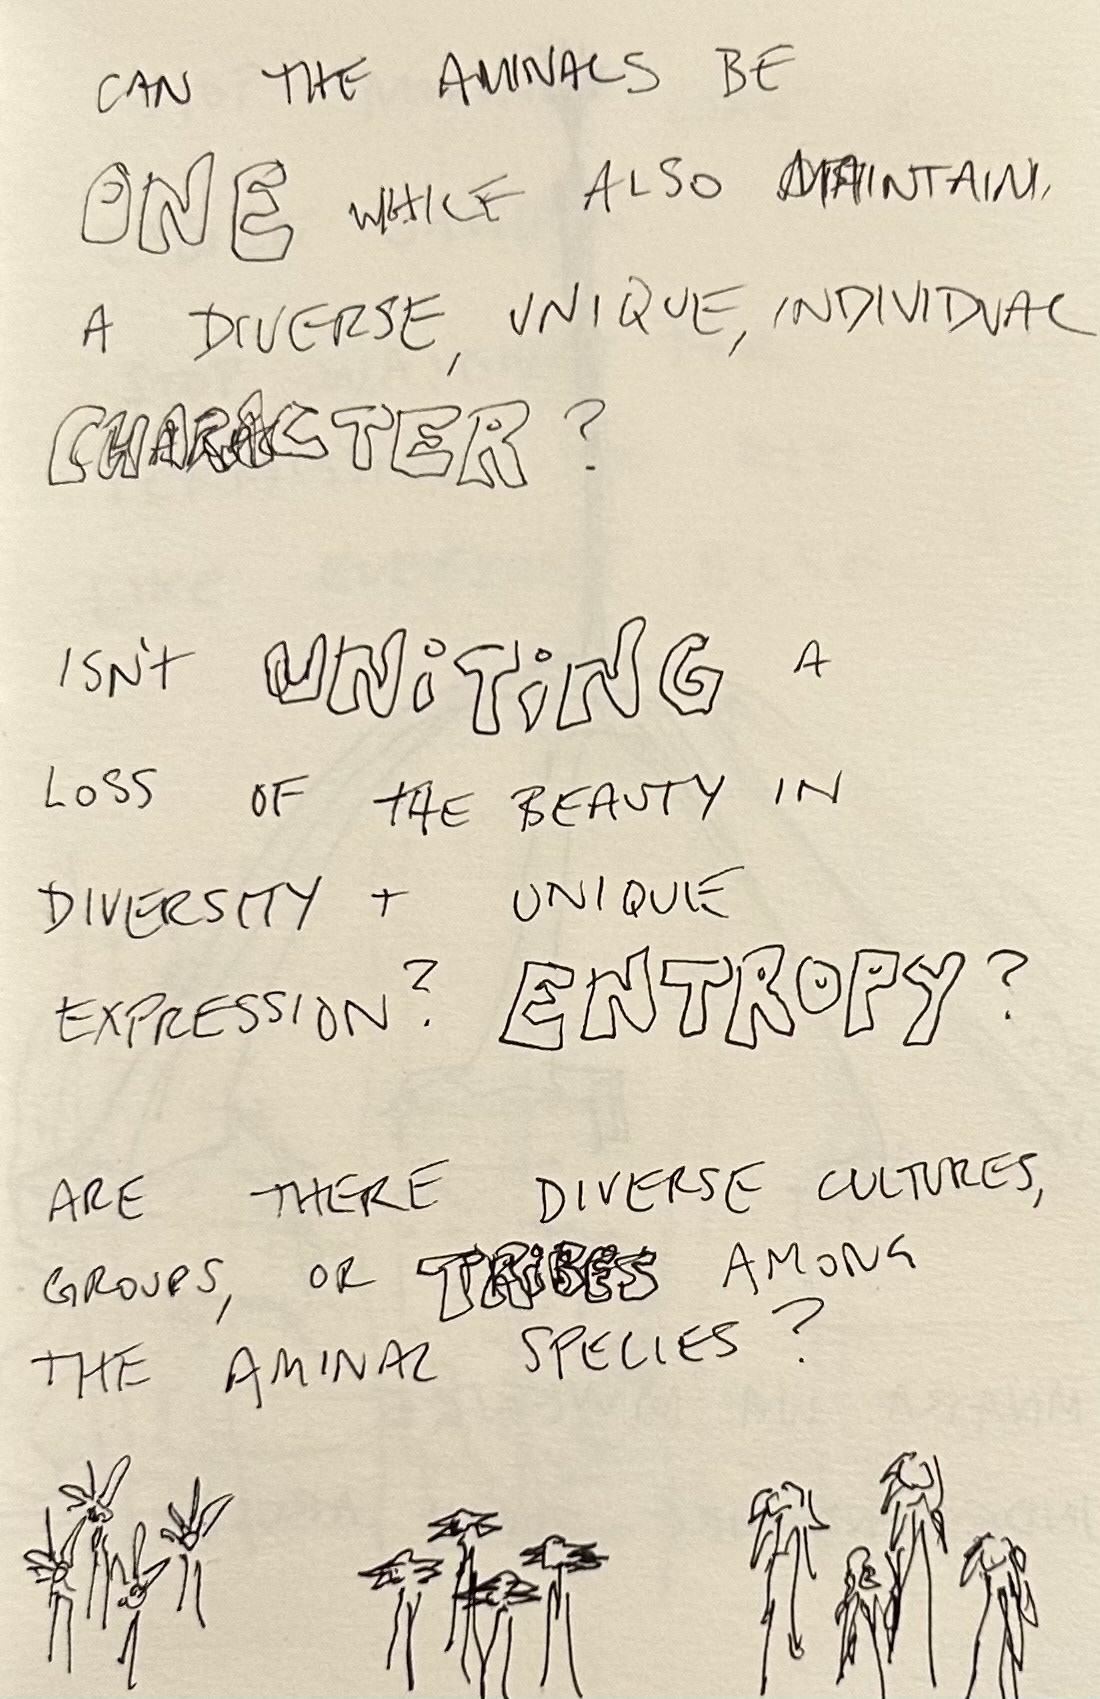 CAN THE AMINALS BE
ONE WHILE ALSO MAINTAIN
A DIVERSE, UNIQUE, INDIVIDUAL
CHARACTER?
ISN'T UNiTiNG A
LOSS OF THE BEAUTY IN
DIVERSITY + UNIQUE
EXPRESSION? ENTROPY?
ARE THERE DIVERSE CULTURES,
GROUPS, OR TRiBES AMONG
THE AMINAL SPECIES?